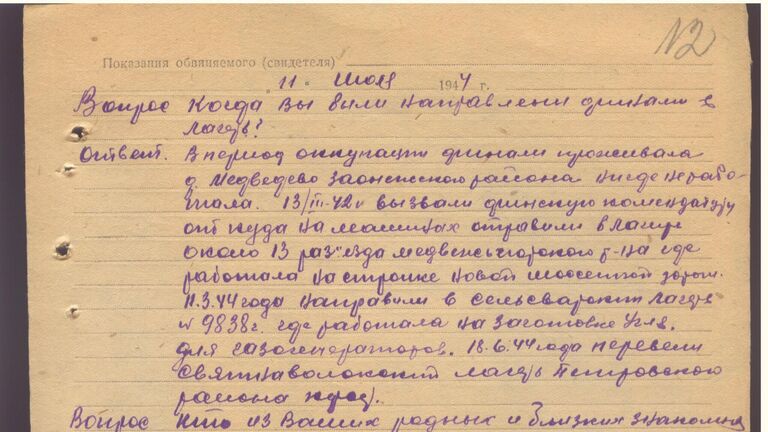 N2
Показания обвиняемого (свидетеля)
"11" июля 1944 г.
Вопрос Когда Вы были направлены финнами в
лагерь?
Ответ. В период оккупации финнами проживала
д. Медведево Заонежского района нигде не рабо-
тала. 13/III-42 г вызвали финскую комендатуру
откуда на машинах отправили в лагерь
около 13 разъезда медвежьегорского р-на где
работала на стройке новой шоссейной дороги.
11.3.44 года направили в Сельсварский лагерь
N 9838 г. где работала на заготовке угля.
для газогенераторов. 18.6.44 года перевели
Святнаволокский лагерь Петровского
района
Вопрос Кто из Ваших родных и близких знакомых